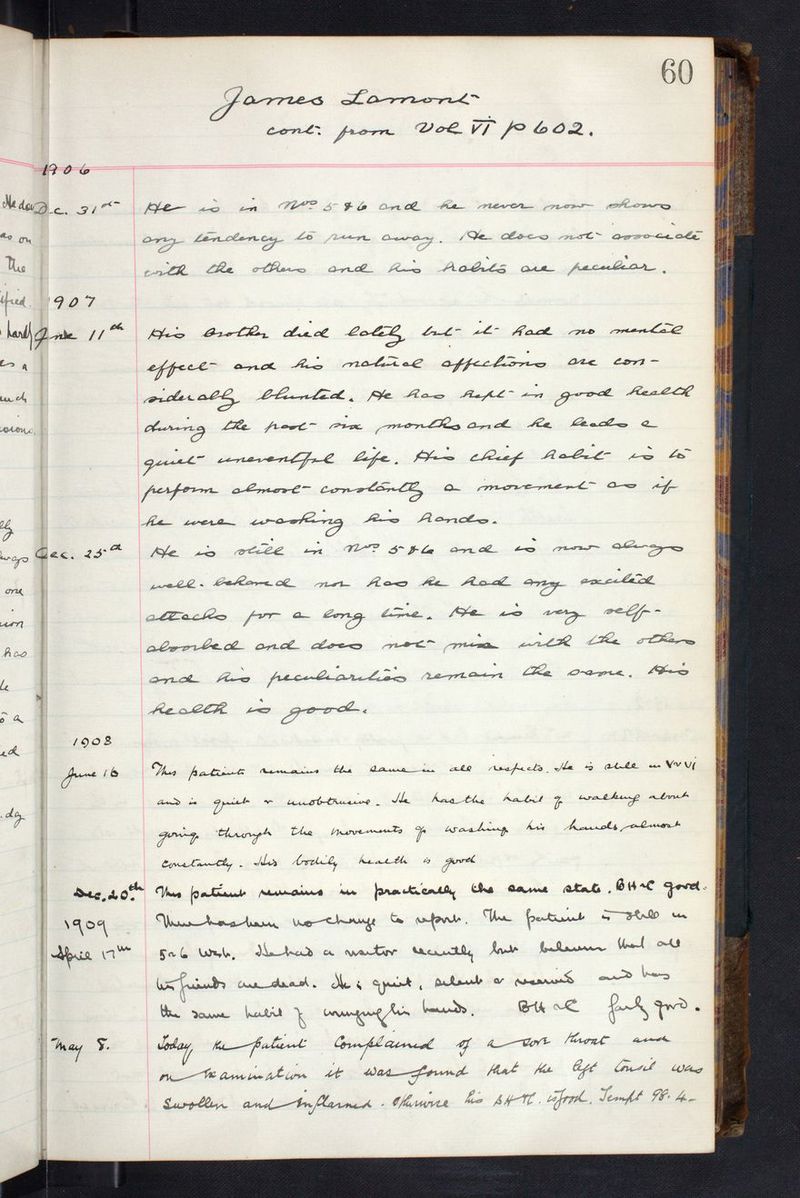 60
James Lamont
cont. from Vol VI p 602.
1906
Dec. 31st He is in Nos 5 & 6 and he never now shows
any tendency to run away. He does not associate
with the others and his habits are peculiar.
1907
June 11th His brother died lately but it had no mental
effect and his natural affections are con-
siderably blunted. He has kept in good health
during the past six months and he leads a
quiet uneventful life. His chief habit is to
perform almost constantly a movement as if
he were washing his hands.
Dec. 25th He is still in Nos 5 & 6 and is now always
well-behaved nor has he had any excited
attacks for a long time. He is very self-
absorbed and does not mix with the others
and his peculiarities remain the same. His
health is good.
1908
June 16 This patient remains the same in all respects. He is still in V & VI
and is quiet & unobtrusive. He has the habit of walking about
going through the movements of washing his hands, almost
constantly. His bodily health is good
Dec. 20th. This patient remains in practically the same state. BH & C good.
1909 There has been no change to report. The patient is still in
April 17th 5 & 6 West. He had a visitor recently but believes that all
his friends are dead. He is quiet, silent & reserved and has
the same habit of wringing his hands. BH & C fairly good.
May 8. Today the patient complained of a sore throat and
on examination it was found that the left tonsil was
swollen and inflamed. Otherwise his BH & C. is good. Tempt 98.4